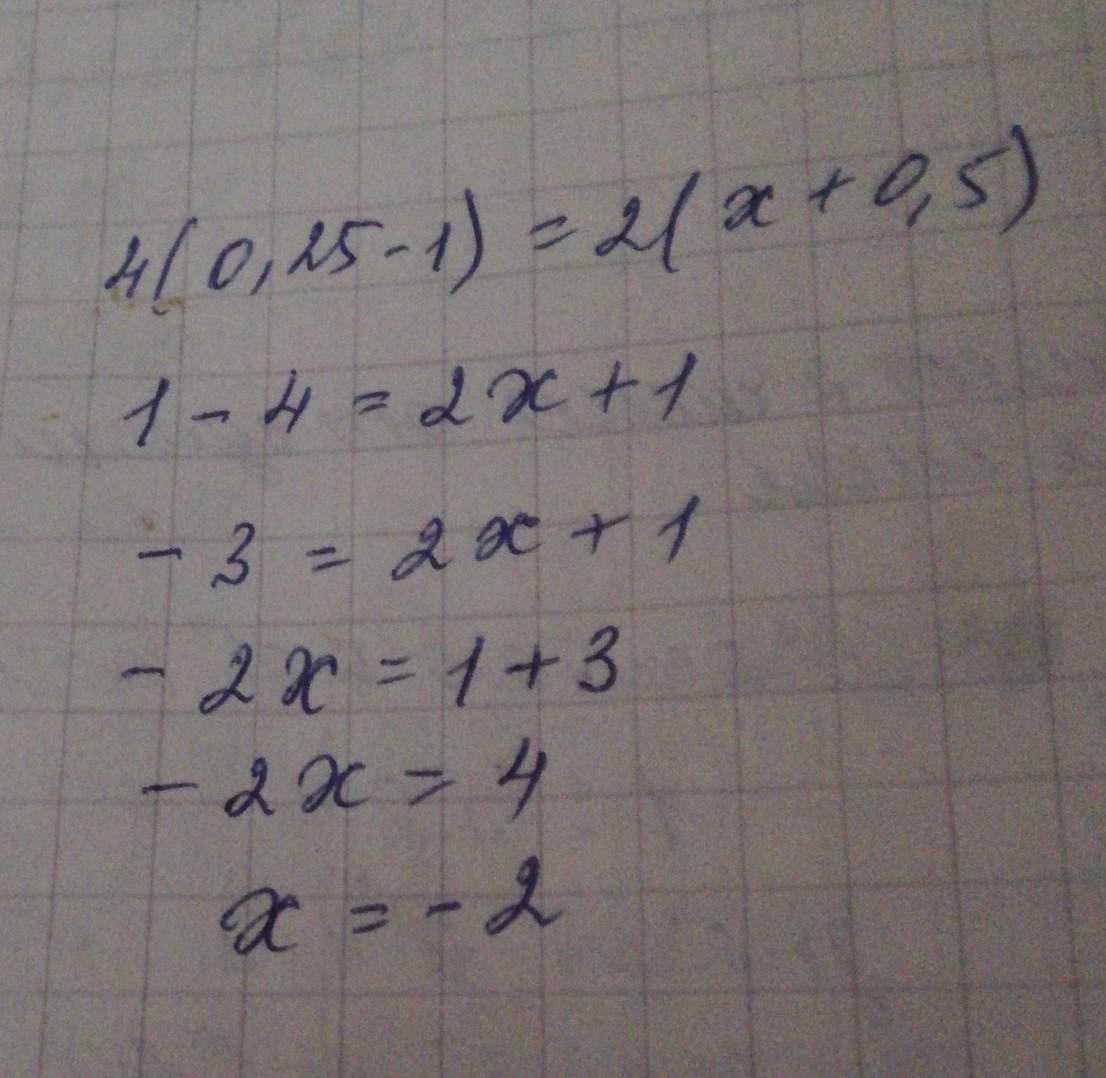 4(0,25-1)=2(x+0,5)
1-4=2x+1
-3=2x+1
-2x=1+3
-2x=4
x=-2